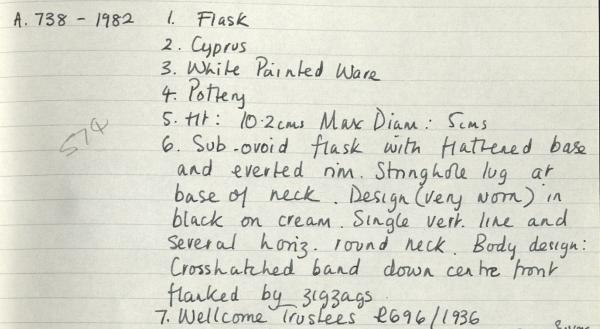 A. 738 - 1982 1. Flask
2. Cyprus
3. White Painted Ware
4. Pottery
5. Ht: 10.2cms Max Diam: 5cms
574
6. Sub-ovoid flask with flattened base
and everted rim. Stringhole lug at
base of neck. Design (very worn) in
black on cream. Single vert. line and
several horiz. round neck. Body design:
Crosshatched band down centre front
flanked by zigzags
7. Wellcome Trustees R696/1936